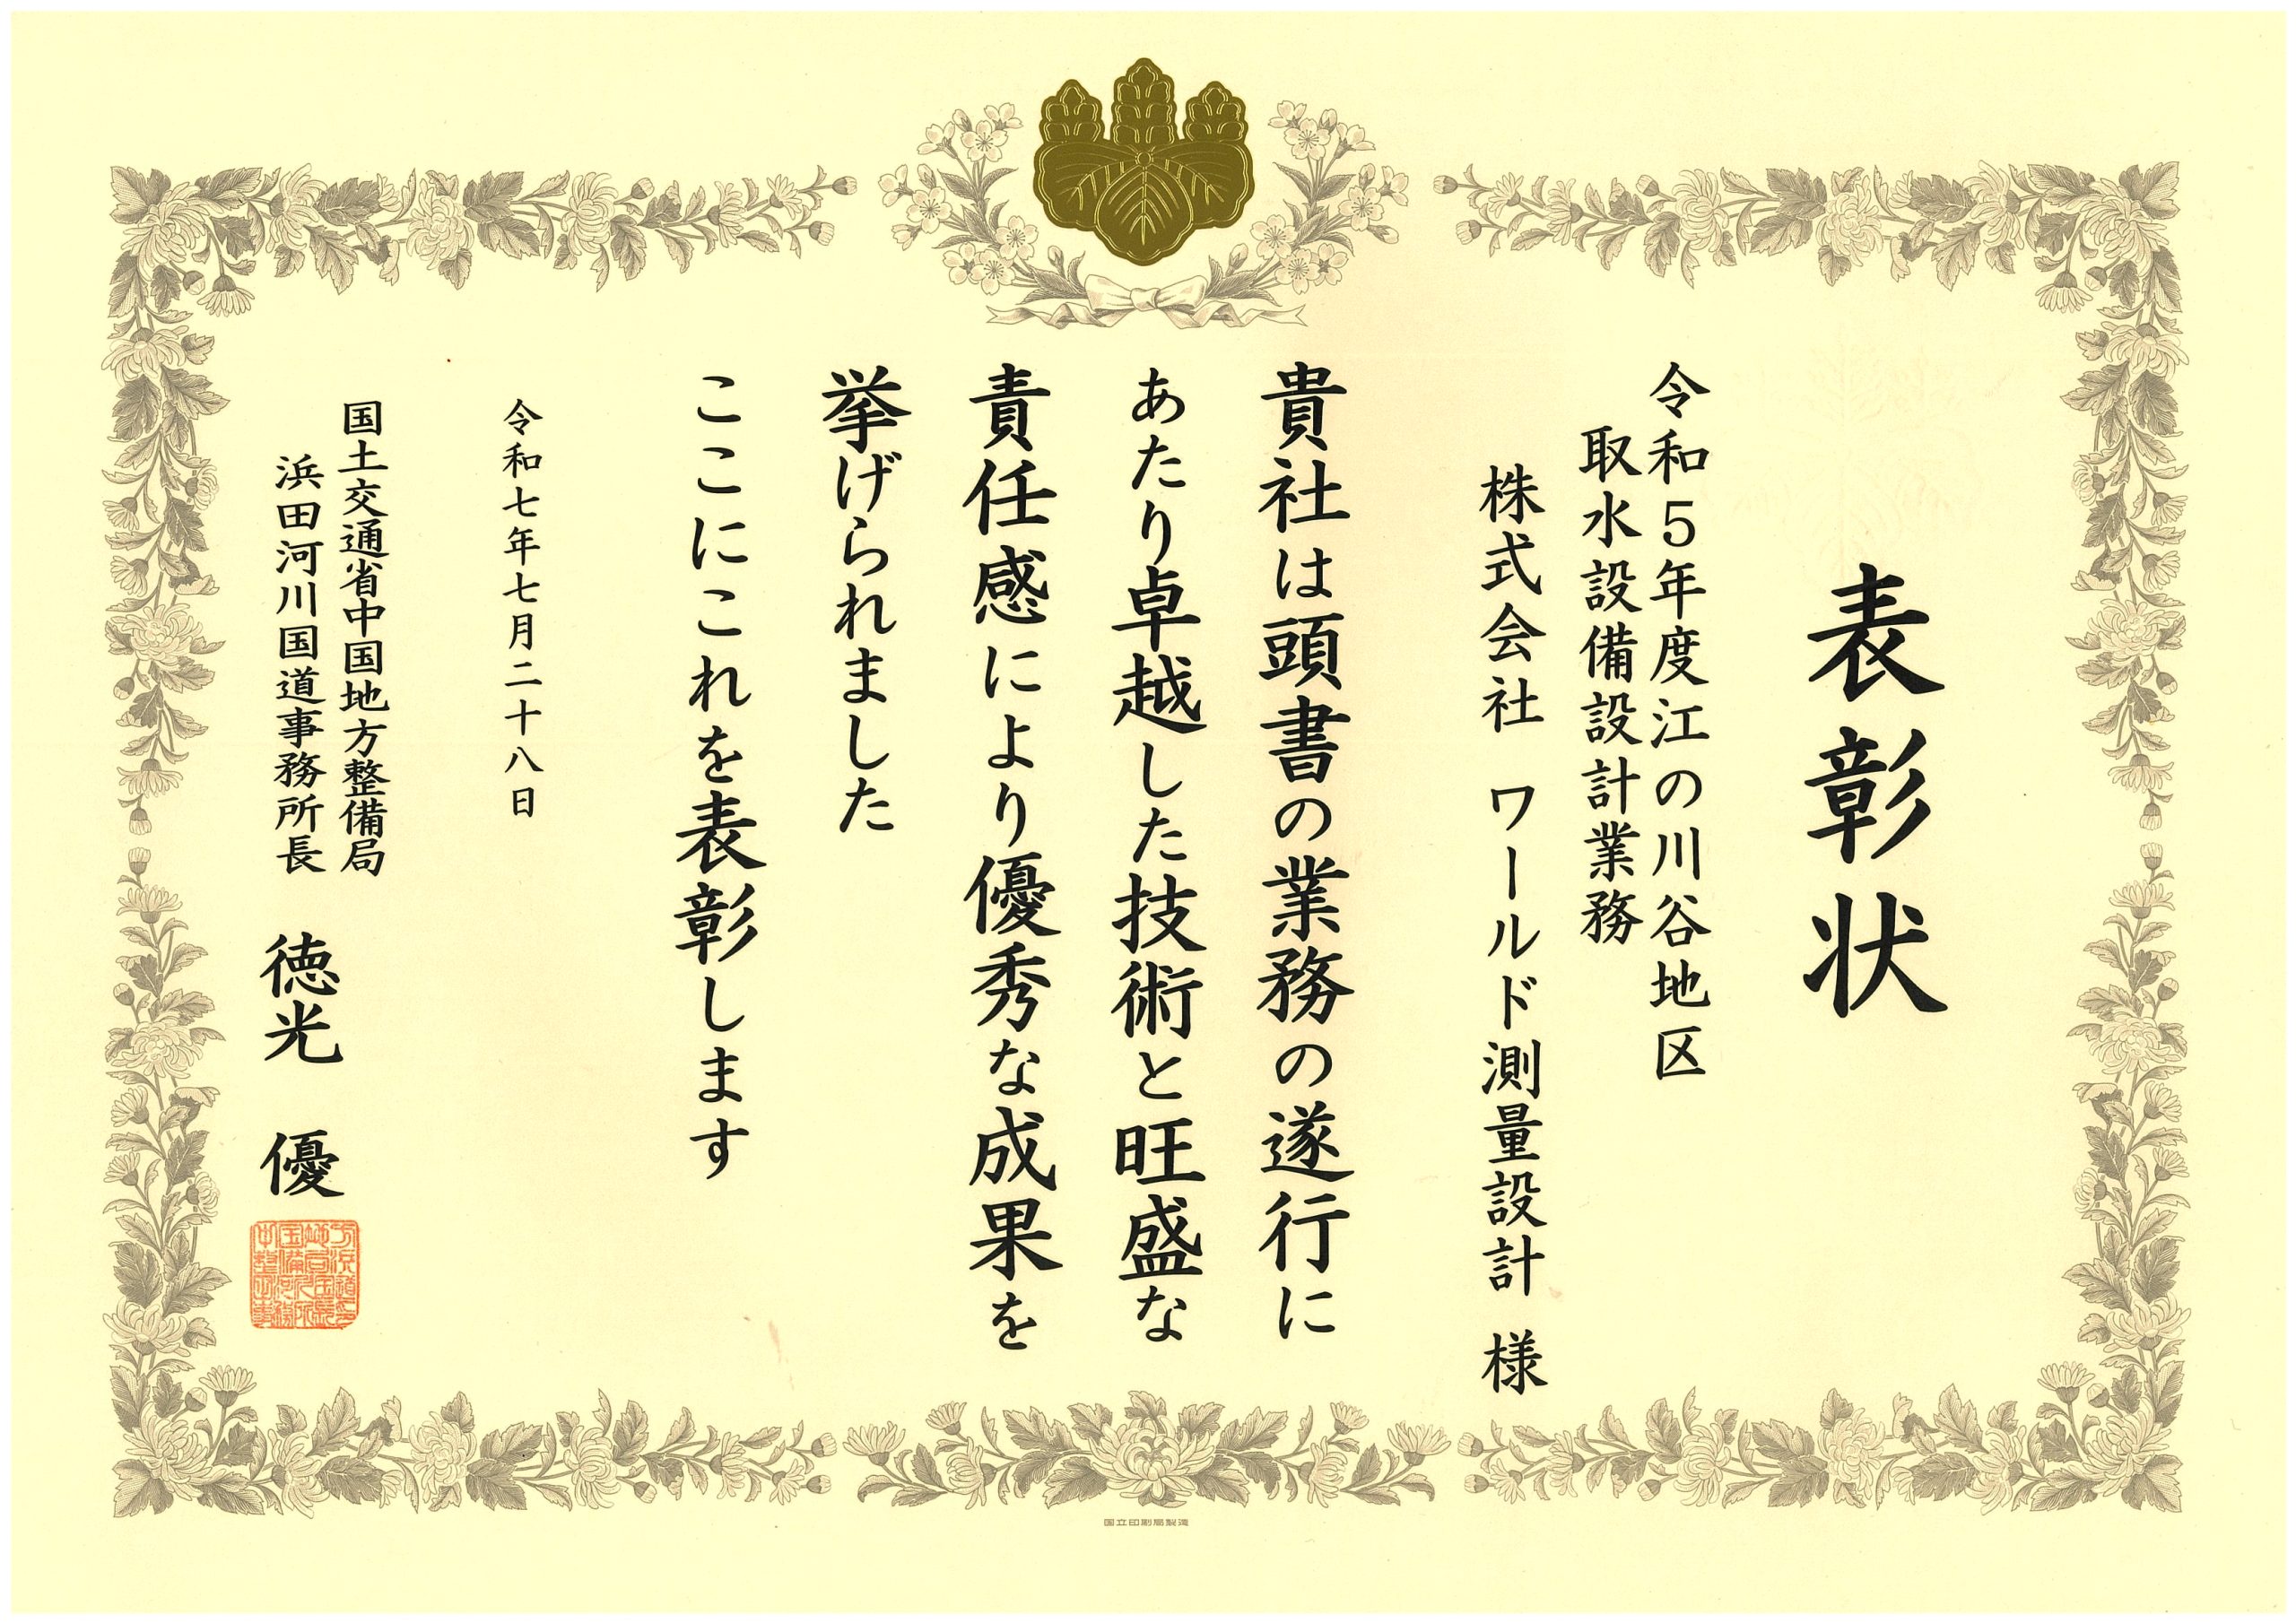 表彰状
令和５年度江の川谷地区
取水設備設計業務
株式会社 ワールド測量設計 様
貴社は頭書の業務の遂行に
あたり卓越した技術と旺盛な
責任感により優秀な成果を
挙げられました
ここにこれを表彰します
令和七年七月二十八日
国土交通省中国地方整備局
浜田河川国道事務所長 徳光 優
国立印刷局製造